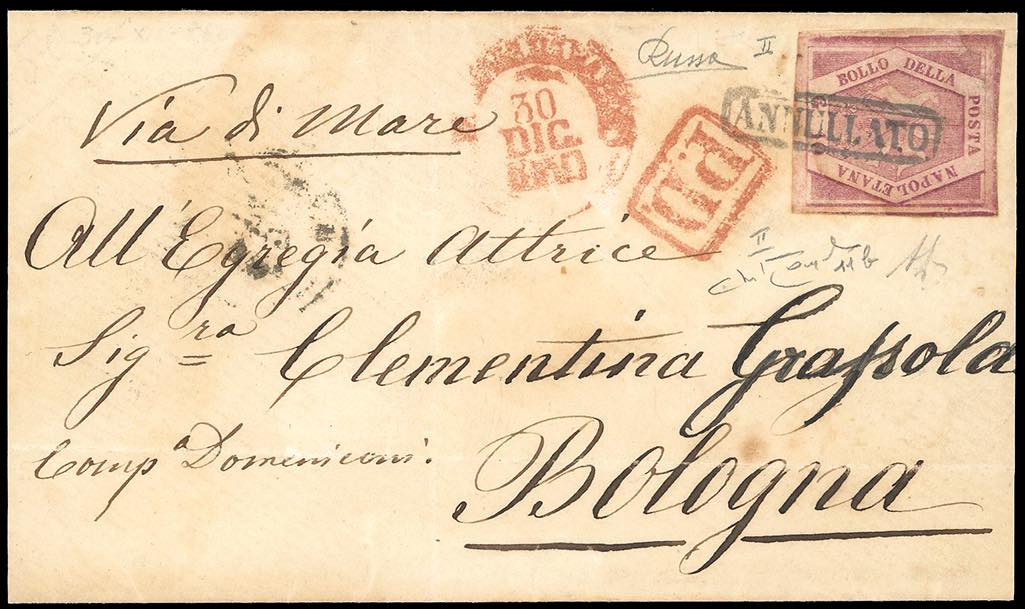 Russo II
BOLLO DELLA POSTA NAPOLETANA
ANNULLATO
30
DIC.
P.D
Via di Mare
All' Egregia Attrice
Sig.ra Clementina Grassola
Comp.a Domeniconi.
Bologna
II
11b